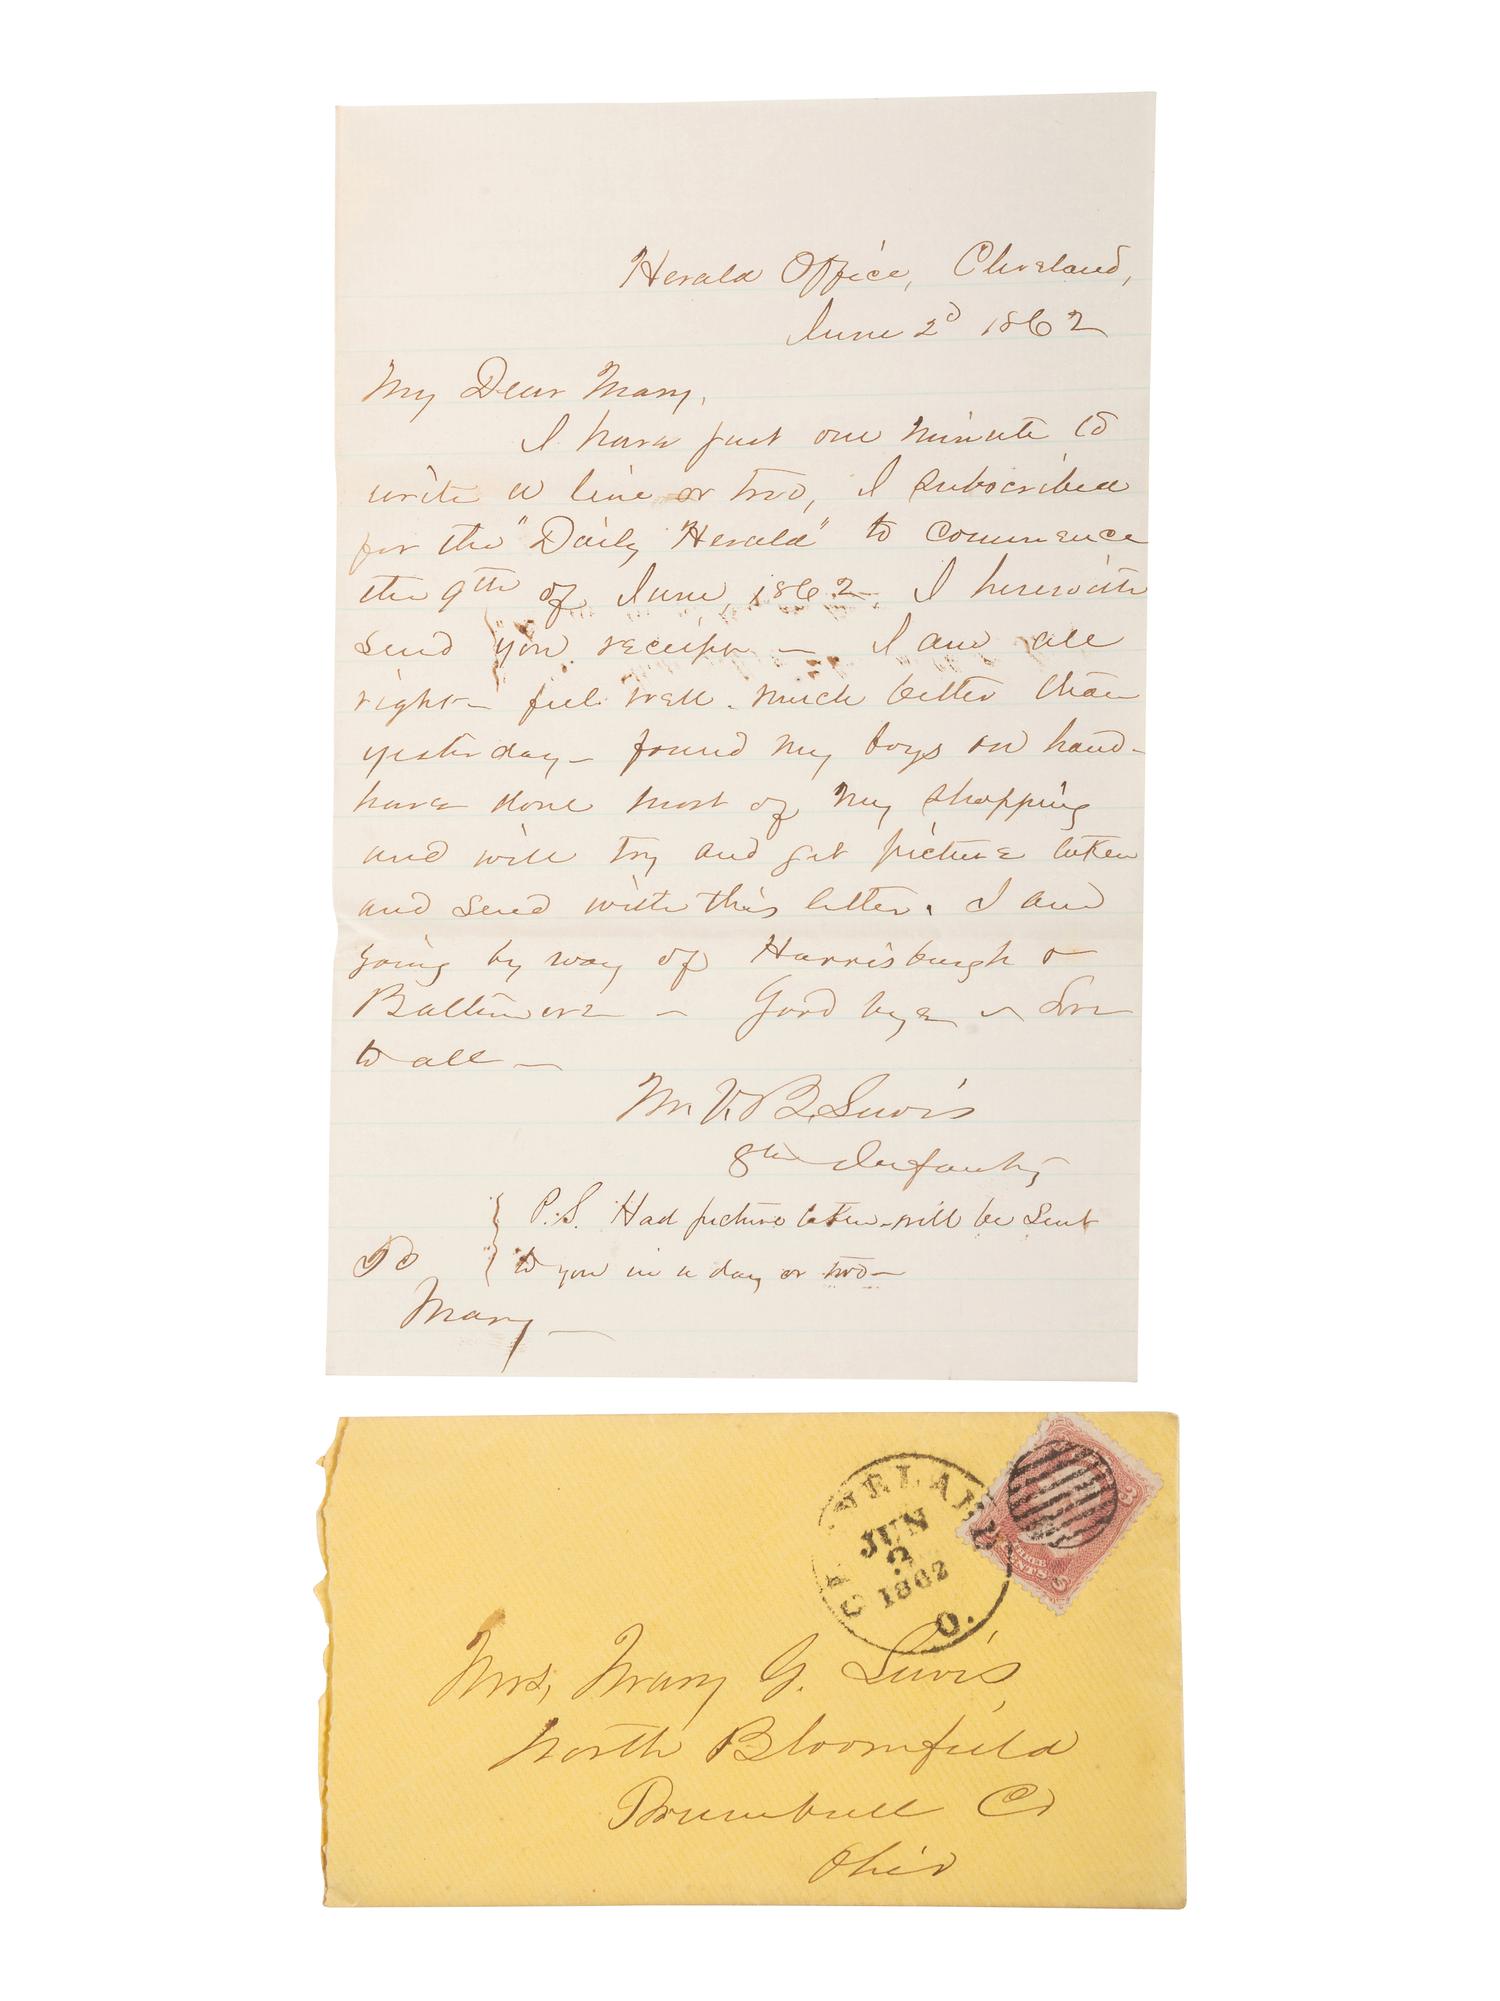 Herald Office, Cleveland,
June 2d 1862
My Dear Mary,
I have just one minute to
write a line or two, I subscribed
for the "Daily Herald" to commence
the 9th of June, 1862. I herewith
send you receipt — I am all
right — feel well. much better than
yesterday — found my boys on hand —
have done most of my shopping
and will try and get picture taken
and send with this letter. I am
going by way of Harrisburgh &
Baltimore — Good bye — Love
to all —
M. V. B. Lewis
8th Infantry
P.S. Had picture taken — will be sent
to you in a day or two —
To
Mary —
CLEVELAND
JUN
2
1862
O.
CENTS
3
Mrs, Mary G. Lewis,
North Bloomfield
Trumbull Co
Ohio